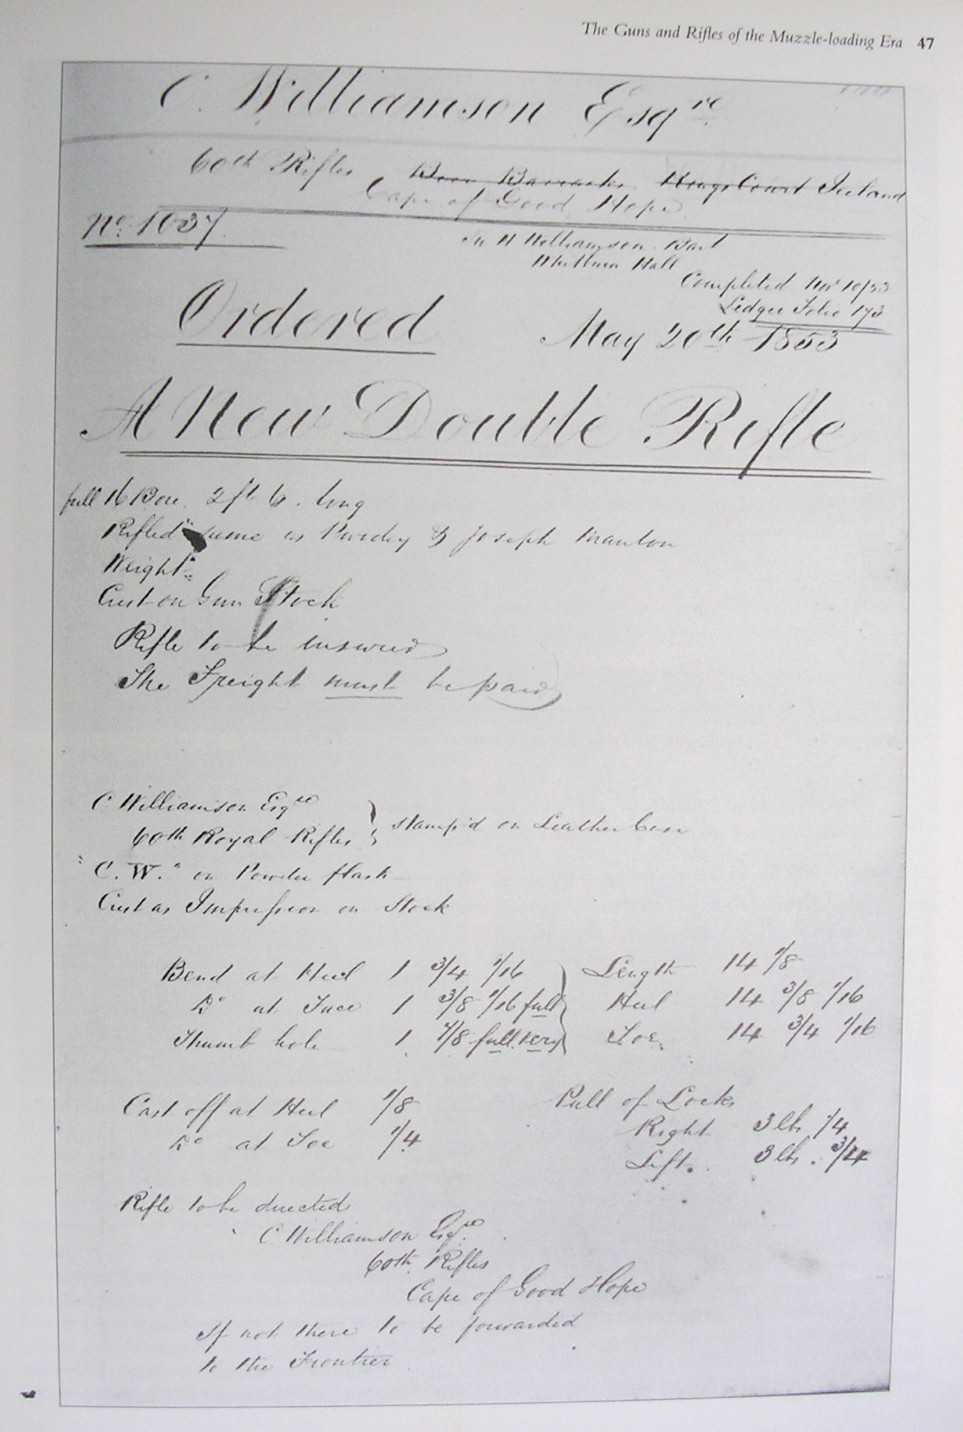 The Guns and Rifles of the Muzzle-loading Era 47
C. Williamson Esqre
60th Rifles Barracks Kings Court Ireland
Cape of Good Hope
No. 1037
Williamson Bart
Whitburn Hall
Completed Novr 10/53
Ledger Folio 173
Ordered May 20th 1853
A New Double Rifle
full 16 Bore. 2 ft 6. long
Rifled same as Purdey & Joseph Manton
Weight
Crest on Gun Stock
Rifle to be insured
The Freight must be paid
C Williamson Esqre
60th Royal Rifles } Stamp'd on Leather Case
"C. W." on Powder flask
Crest as Impression on Stock
Bend at Heel 1 3/4 1/16 Length 14 1/8
Do at Face 1 3/8 1/16 full Heel 14 3/8 1/16
Thumb hole 1 7/8 full very Toe. 14 3/4 1/16
Cast off at Heel 1/8 Pull of Locks
Do at Toe 1/4 Right 3 lb 1/4
Left. 3 lb. 3/4
Rifle to be directed
C. Williamson Esqre
60th Rifles
Cape of Good Hope
If not there to be forwarded
to the Frontier